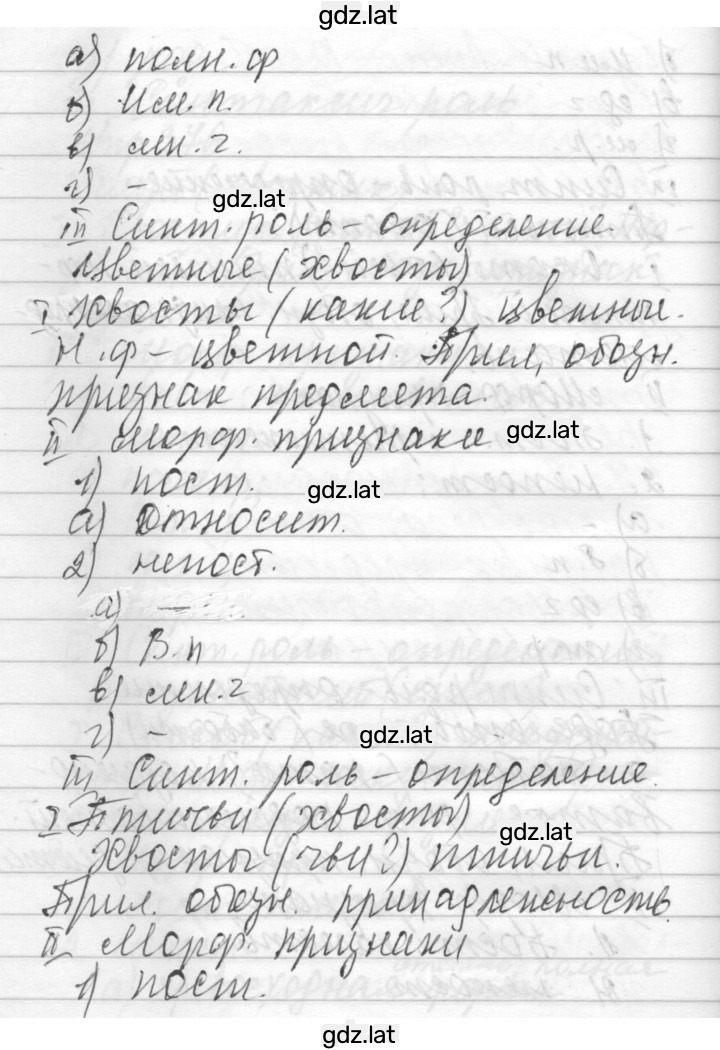 gdz.lat
а) полн. ф
б) Им. п.
в) мн. ч.
г) –
gdz.lat
III Синт. роль – определение.
Цветные (хвосты)
I Хвосты (какие?) цветные.
Н. ф – цветной. Прил, обозн.
признак предмета.
II Морф. признаки
gdz.lat
1) пост.
gdz.lat
а) относит.
2) непост.
а) –
б) В.п
в) мн. ч
г) –
gdz.lat
III Синт. роль – определение.
I Птичьи (хвосты)
gdz.lat
Хвосты (чьи?) птичьи.
Прил. обозн. принадлежность.
II Морф. признаки
1) пост.
gdz.lat